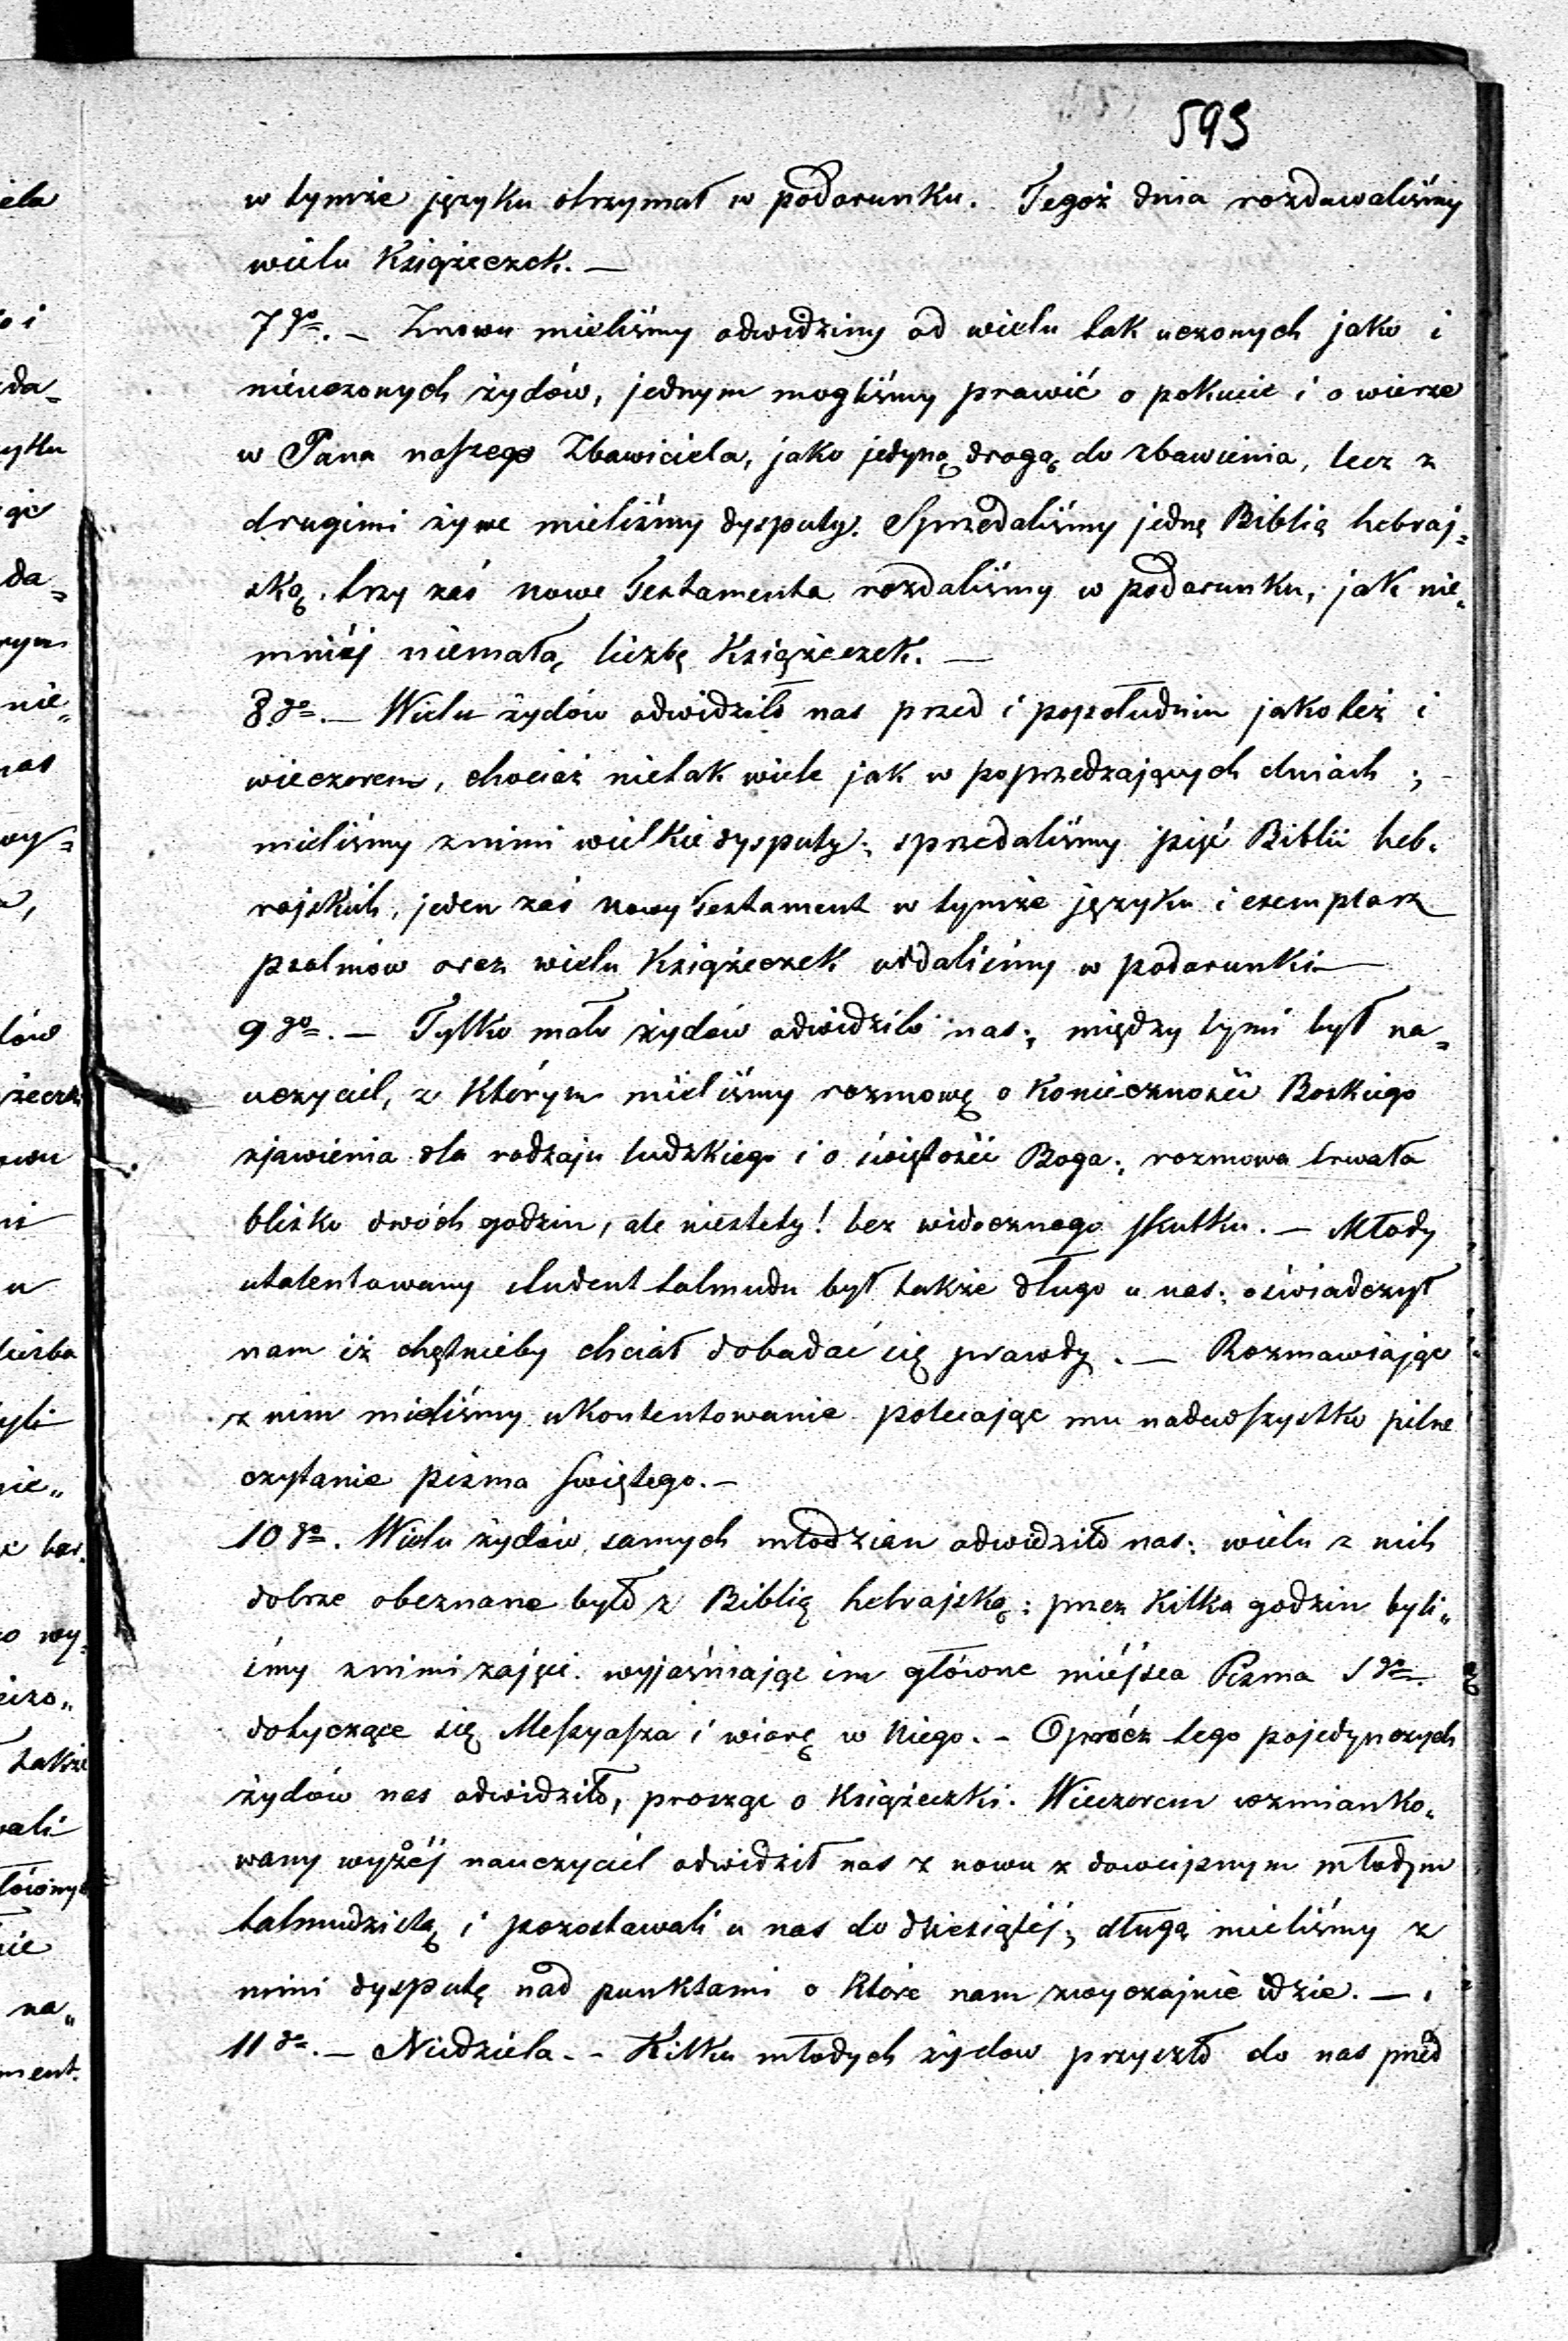 593
w tymże języku otrzymał w podarunku. Tegoż dnia rozdawaliśmy
wielu Książeczek. —
7go. — Znowu mieliśmy odwidziny od wielu tak uczonych jako i
nieuczonych żydów, jednym mogliśmy prawić o pokucie i o wierze
w Pana naszego Zbawiciela, jako jedyną drogą do zbawienia, lecz z
drugimi żywe mieliśmy dysputy. Sprzedaliśmy jednę Biblią hebraj=
ską, trzy zaś nowe Testamenta rozdaliśmy w podarunku, jak nie=
mniéj niemałą liczbę Książeczek. —
8go. — Wielu żydów odwidziło nas przed i popołudniu jakoteż i
wieczorem, chociaż nietak wiele jak w poprzedzających dniach ; —
mieliśmy znimi wielkie dysputy; sprzedaliśmy pięć Biblii heb=
rajskich, jeden zaś nowy Testament w tymże języku i exemplarz
psalmów oraz wielu Książeczek oddaliśmy w podarunki —
9go. — Tylko mało żydów odwidziło nas; między tymi był na=
uczyciel, z którym mieliśmy rozmowę o Konieczności Boskiego
zjawienia dla rodzaju ludzkiego i o świętości Boga; rozmowa trwała
blisko dwóch godzin, ale niestety! bez widocznego skutku. — Młody
utalentowany student talmudu był także długo u nas; oświadczył
nam iż chętnieby chciał dobadać się prawdy. — Rozmawiając
z nim mieliśmy ukontentowanie polecając mu nadewszystko pilne
czytanie pisma świętego. —
10go. Wielu żydów, samych młodzian odwidziło nas; wielu z nich
dobrze obeznane było z Biblią hebrajską; przez Kilka godzin byli„
śmy znimi zajęci wyjaśniając im główne miéjsca Pisma Sgo.
dotyczące się Messyasza i wiarę w Niego. — Oprócz tego pojedynczych
żydów nas odwidziło, prosząc o Książeczki. Wieczorem wzmianko„
wany wyżéj nauczyciel odwidził nas z nowu z dowcipnym młodym
talmudzistą i pozostawali u nas do dziesiątéj; długą mieliśmy z
nimi dysputę nad punktami o które nam zwyczajnie idzie. —
11go. — Niedziela. - Kilku młodych żydow przyszło do nas przed